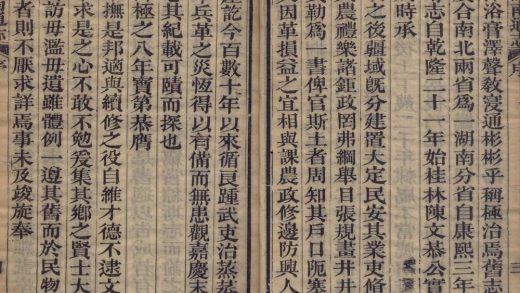 俗官澤聲教寖通彬彬乎稱極治焉舊志
合南北兩省為一湖南分省自康熙三年
志自乾隆二十一年始桂林陳文恭公實
時承
之後疆域旣分建置大定民安其業吏脩
農禮樂諸鉅政罔弗綱舉目張規畫井井
勒為一書俾官斯土者周知其戶口阨塞
因革損益之宜相與課農政修邊防興人
訖今百數十年以來循良踵武吏治蒸蒸
兵革之災恆得以有備而無患觀嘉慶末
其紀載可蹟而探也
極之八年寶第恭膺
撫是邦適與續修之役自維才德不逮文
求是之心不敢不勉爰集其鄉之賢士大
訪毋濫毋遺雖體例一遵其舊而於民物
者則不厭求詳焉事未及竣旋奉